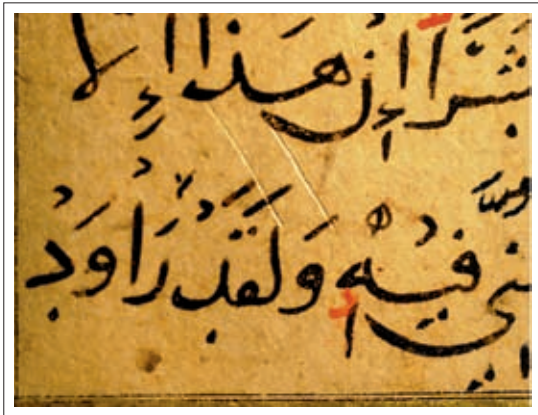 بَشَرًا إِنْ هَذَا إِلَّا
فِيهِ وَلَقَدْ رَاوَد